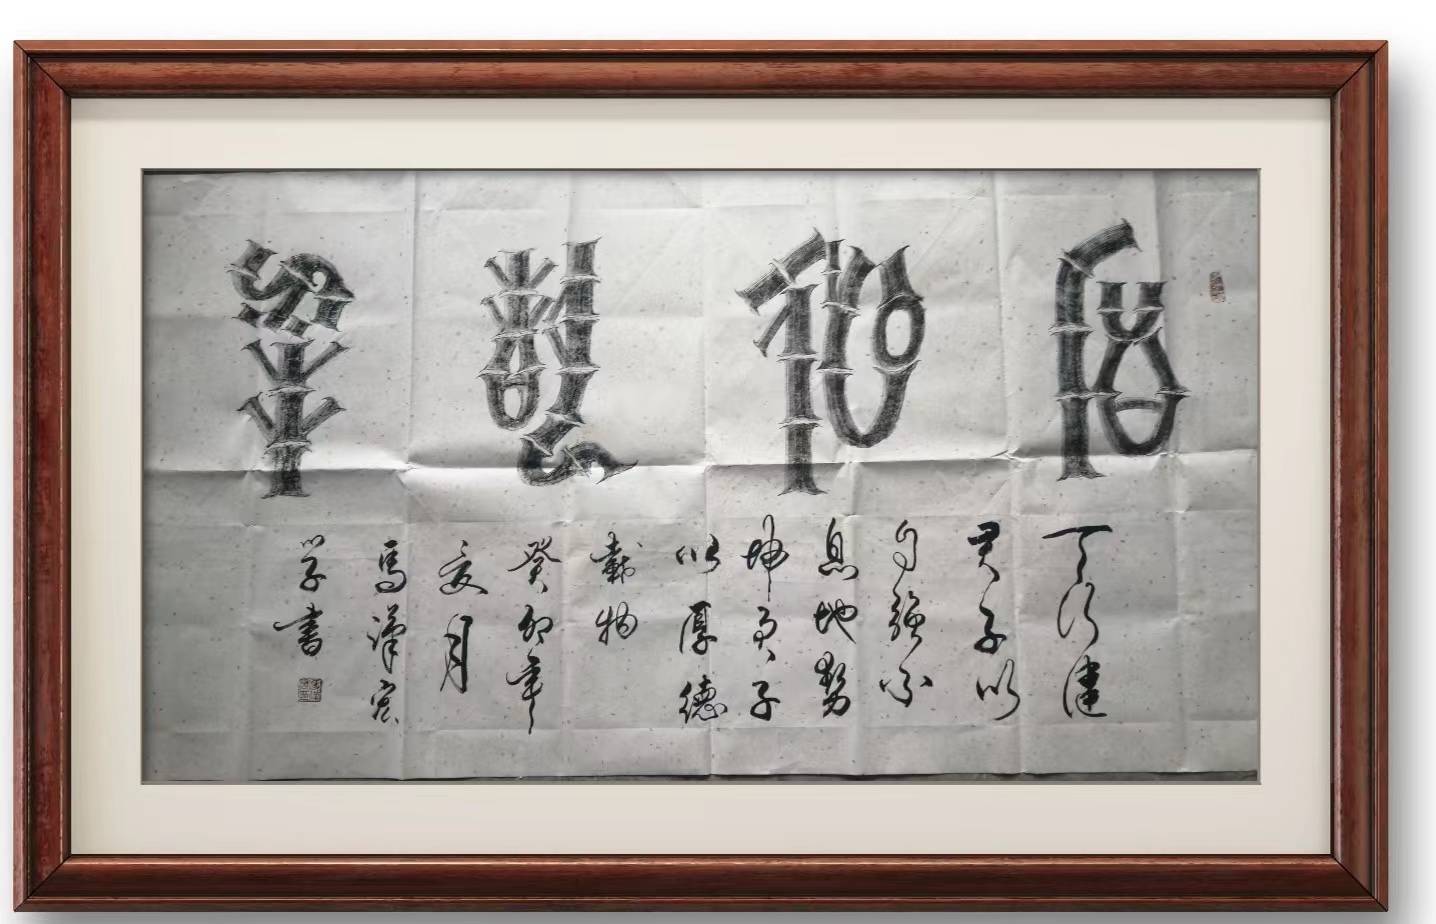 厚德載物
天行健
君子以
自強不
息地勢
坤君子
以厚德
載物
癸卯年
夏月
馬漢
学書